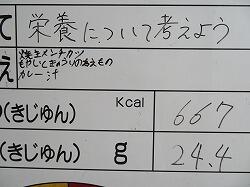 て 栄養について考えよう
え 焼きメンチカツ
もやしときゅうりのあえもの
カレー汁
Kcal
(きじゅん) 667
(きじゅん) g 24.4